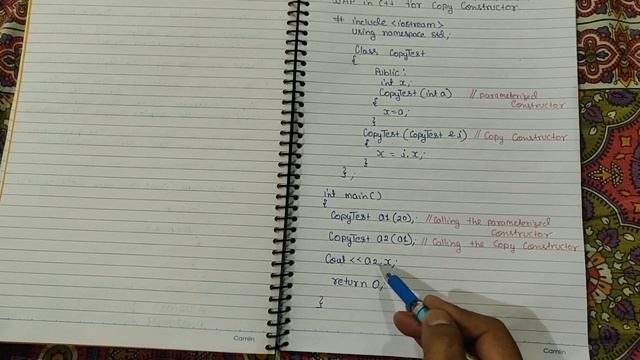 WAP in C++ for Copy Constructor
# include <iostream>
using namespace std;
Class CopyTest
{
Public:
int x;
CopyTest (int a) // parameterized
Constructor
{
x=a;
}
CopyTest (CopyTest & i) // Copy Constructor
{
x = i.x;
}
};
int main()
{
CopyTest a1(20); // calling the parameterized
Constructor
CopyTest a2(a1); // Calling the Copy Constructor
Cout << a2.x;
return 0;
}
Camlin
Camlin